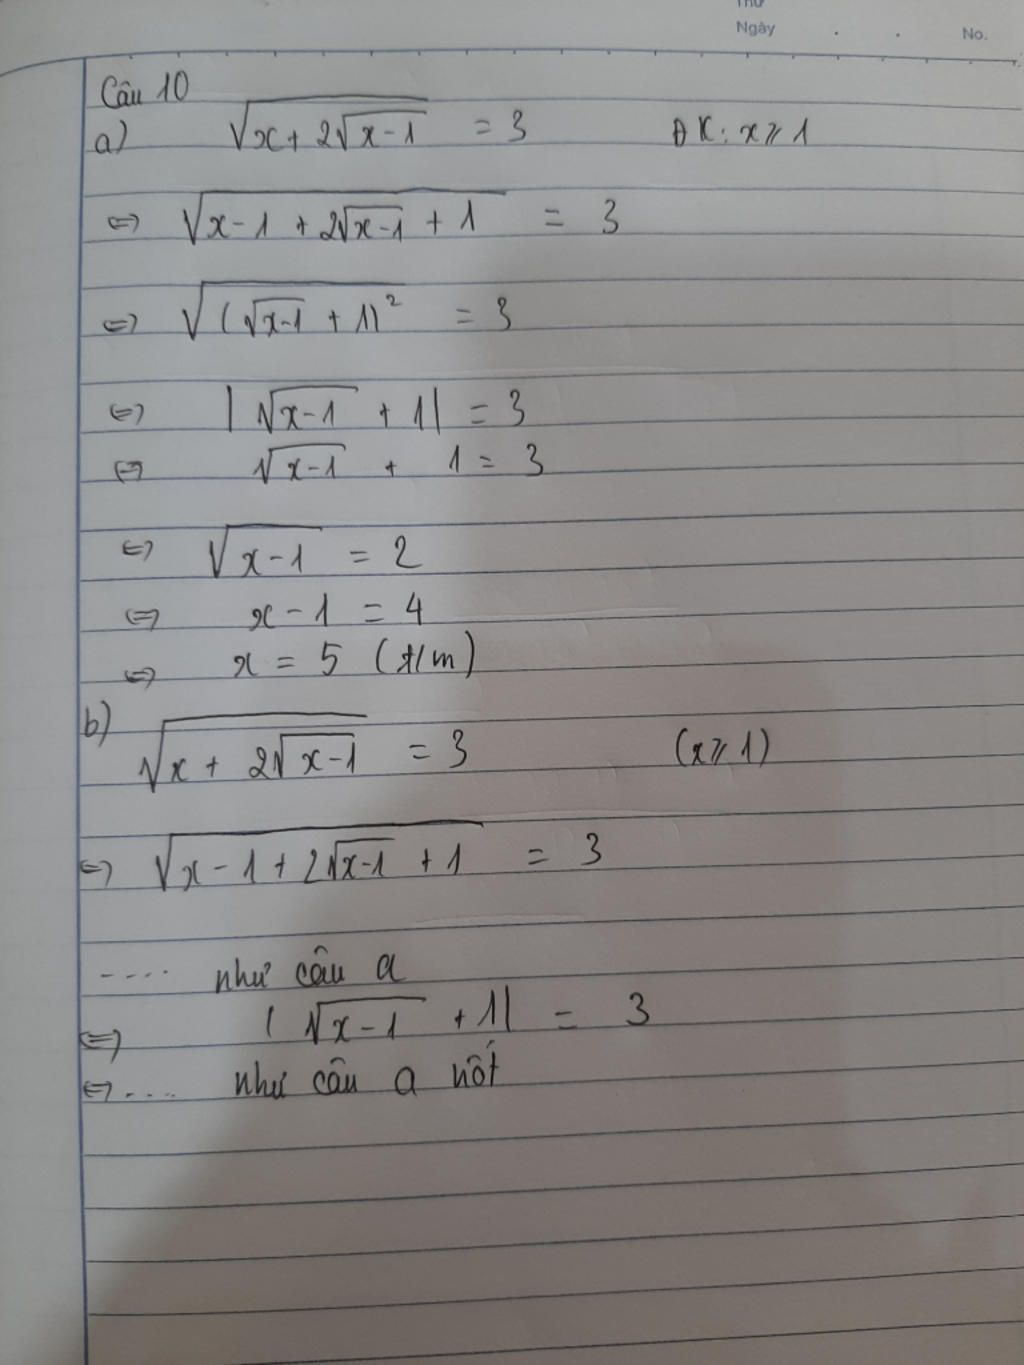 Thứ
Ngày . . No.
Câu 10
a) √(x + 2√(x-1)) = 3 ĐK: x ≥ 1
⇔ √(x-1 + 2√(x-1) + 1) = 3
⇔ √((√(x-1) + 1)²) = 3
⇔ |√(x-1) + 1| = 3
⇔ √(x-1) + 1 = 3
⇔ √(x-1) = 2
⇔ x - 1 = 4
⇔ x = 5 (t/m)
b)
√(x + 2√(x-1)) = 3 (x ≥ 1)
⇔ √(x - 1 + 2√(x-1) + 1) = 3
---- như câu a
⇔ |√(x-1) + 1| = 3
⇔ .... như câu a nốt